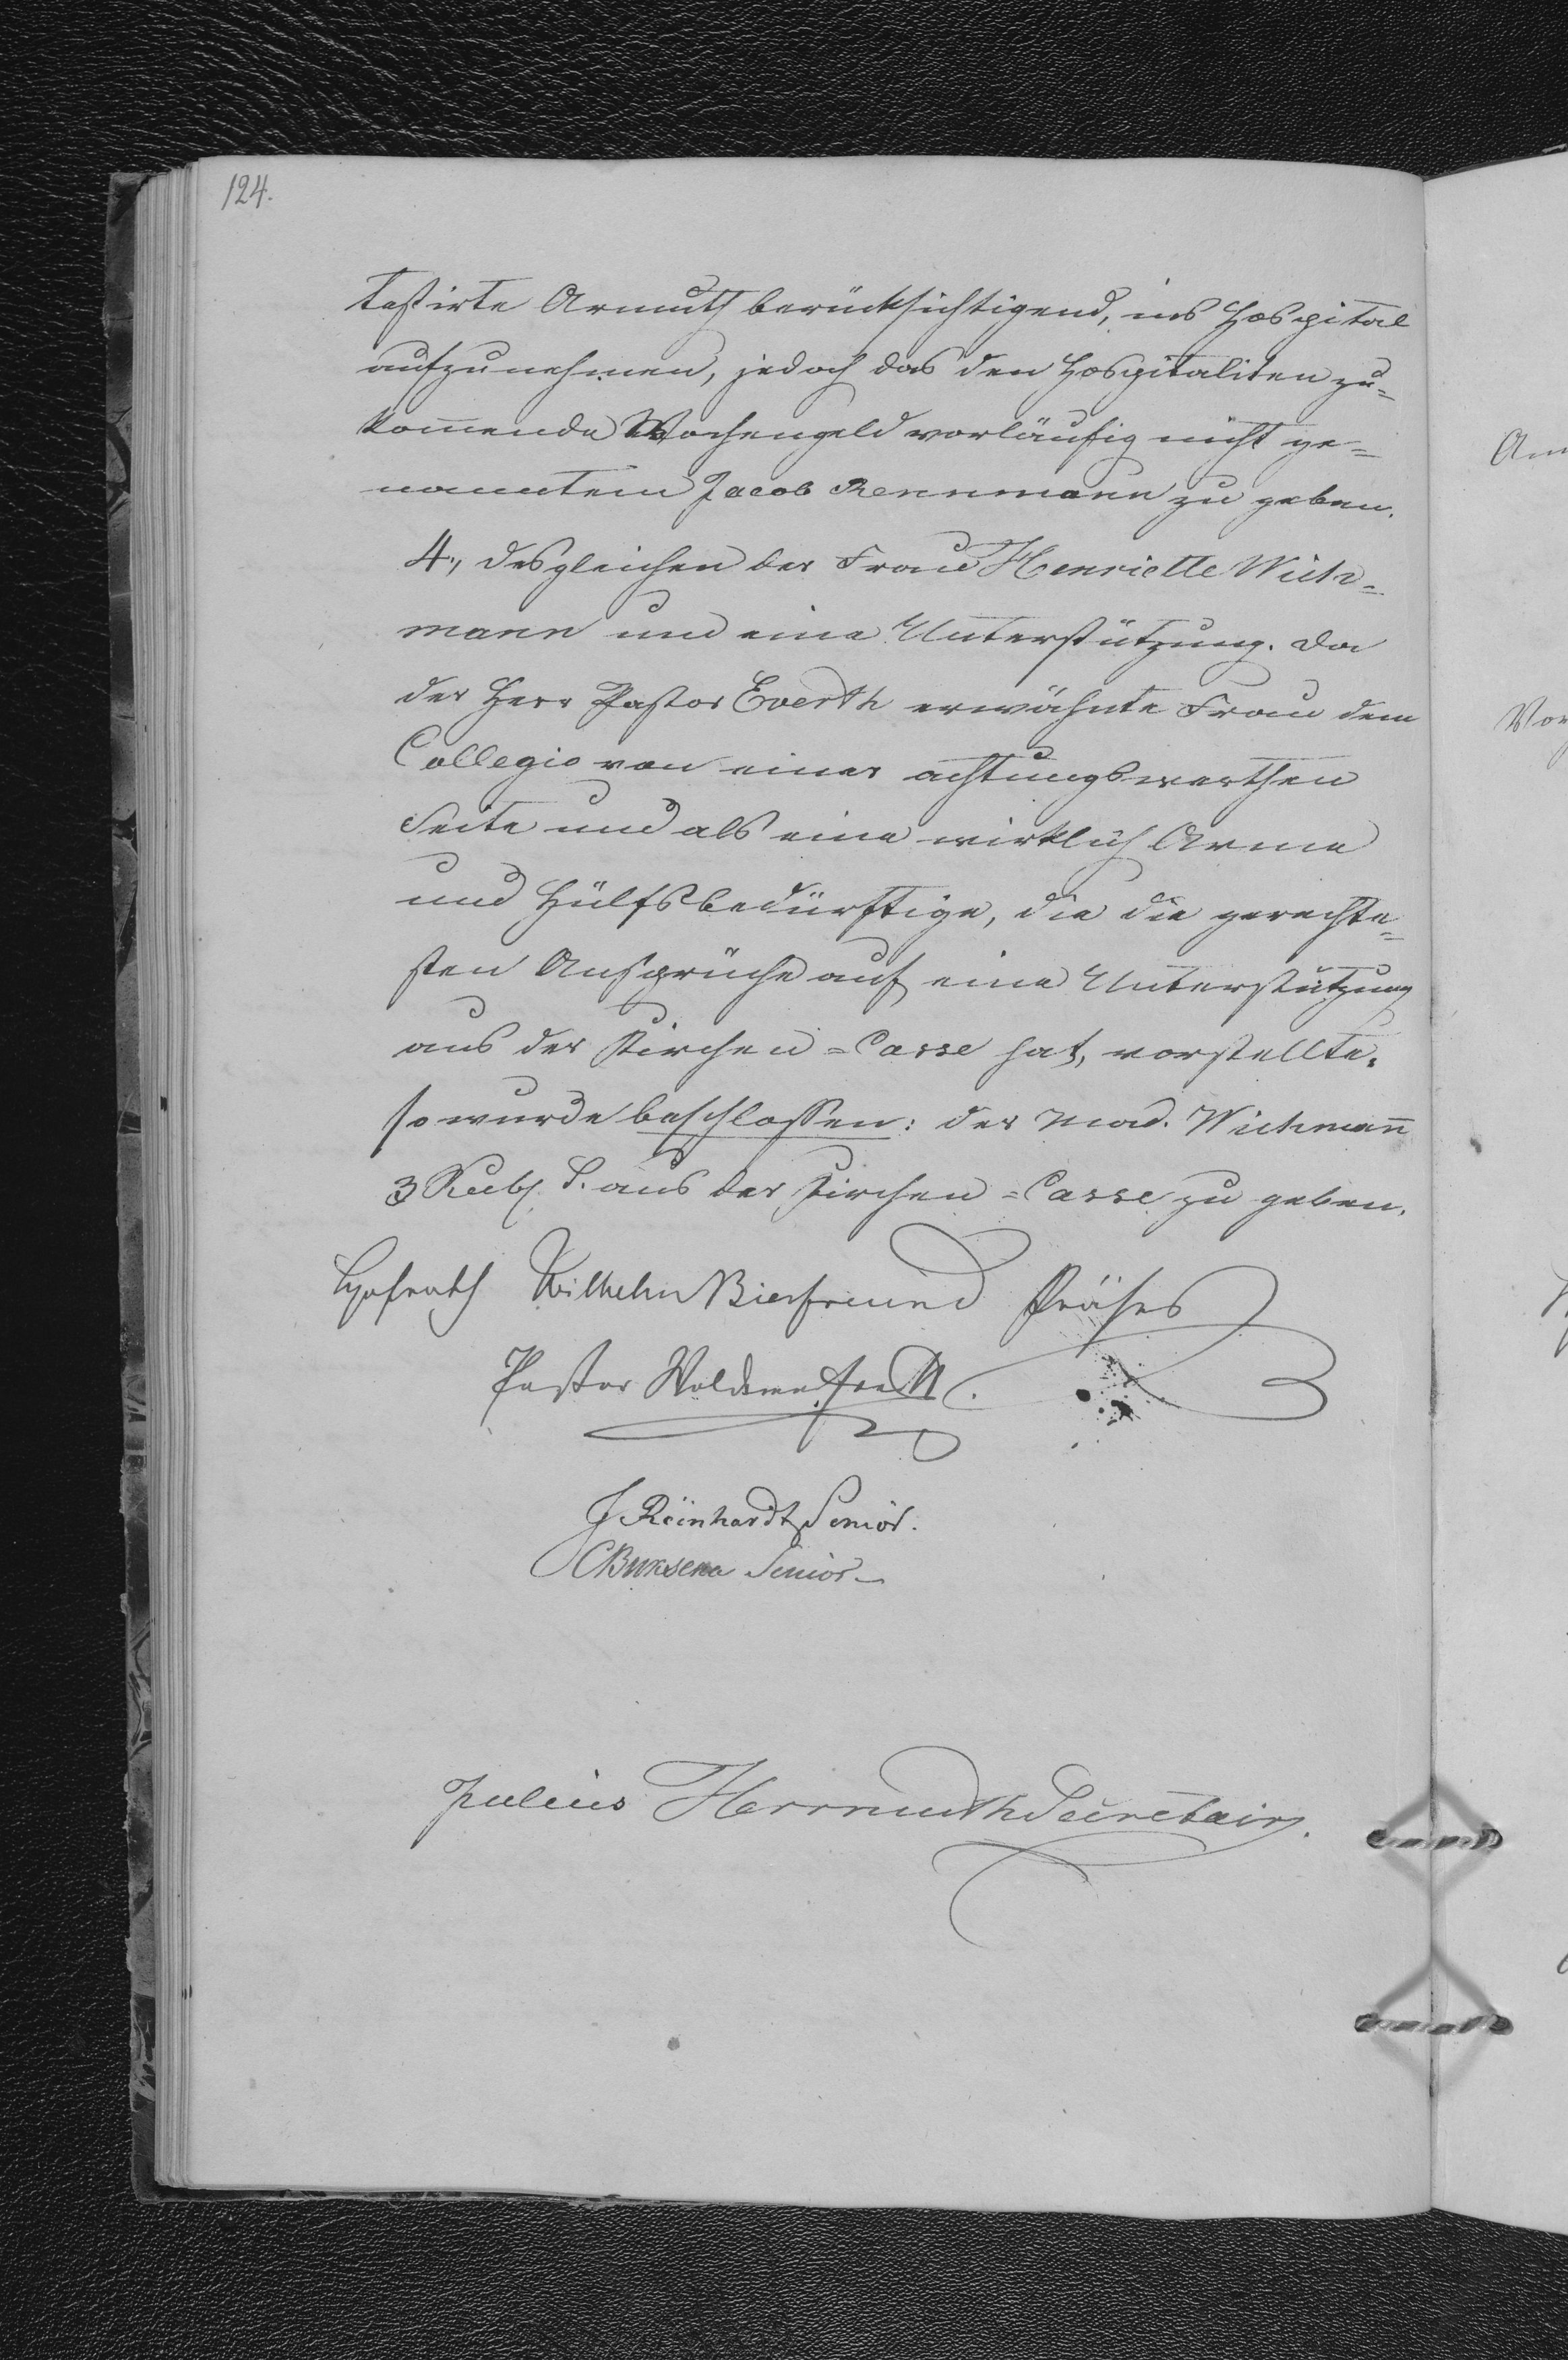 124.
testirte Armuth berücksichtigend, ins Hospital
aufzunehmen, jedoch das den Hospitaliten zu=
kom̄ende Wochengeld vorläufig nicht ge=
nanntem Jacob Rennmann zu geben.
4., desgleichen der Frau Henriette Wich=
mann um eine Unterstützung. Da
der Herr Pastor Everth erwähnte Frau dem
Collegio von einer achtungswerthen
Seite und als eine wirklich Arme
und Hülfsbedürftige, die die gerechte=
sten Ansprüche auf eine Unterstützung
aus der Kirchen=Casse hat, vorstellte,
so wurde beschlossen: der Mad. Wichman̄
3 Rub. S. aus der Kirchen=Casse zu geben.
Hofrath Wilhelm Bierfreund Präses
Pastor Woldemar Everth.
J Reinhardt Senior.
Senior
Julius Herrmuth Secretair.
Am
Vor